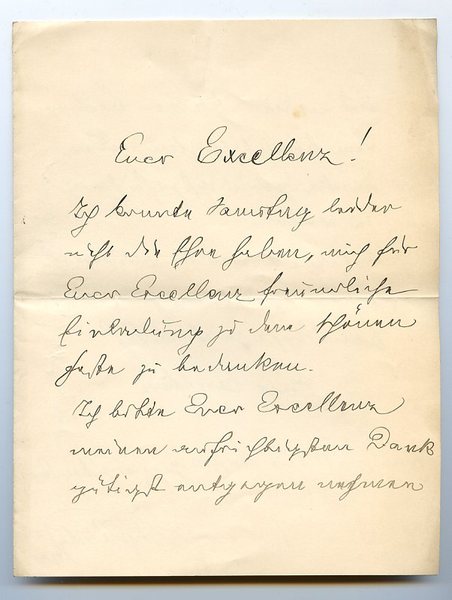 Euer Excellenz!
Ich konnte Samstag leider
nicht die Ehre haben, mich für
Euer Excellenz freundliche
Einladung zu dem schönen
Feste zu bedanken.
Ich bitte Euer Excellenz
meinen aufrichtigsten Dank
gütigst entgegen nehmen